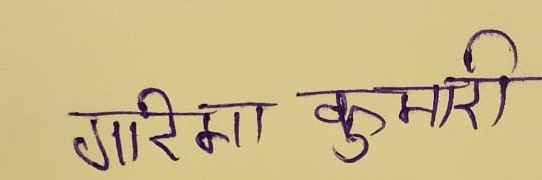 गारिमा कुमारी